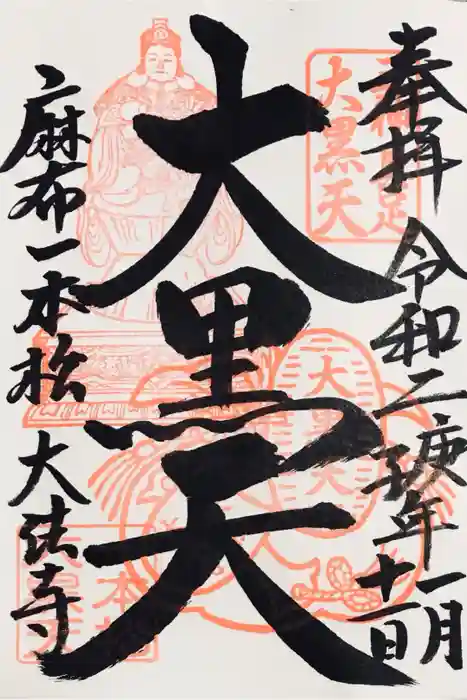 奉拝 令和二庚子年一月十一日
大黒天
麻布一本松 大法寺
足
大黒天
大黒天
本松